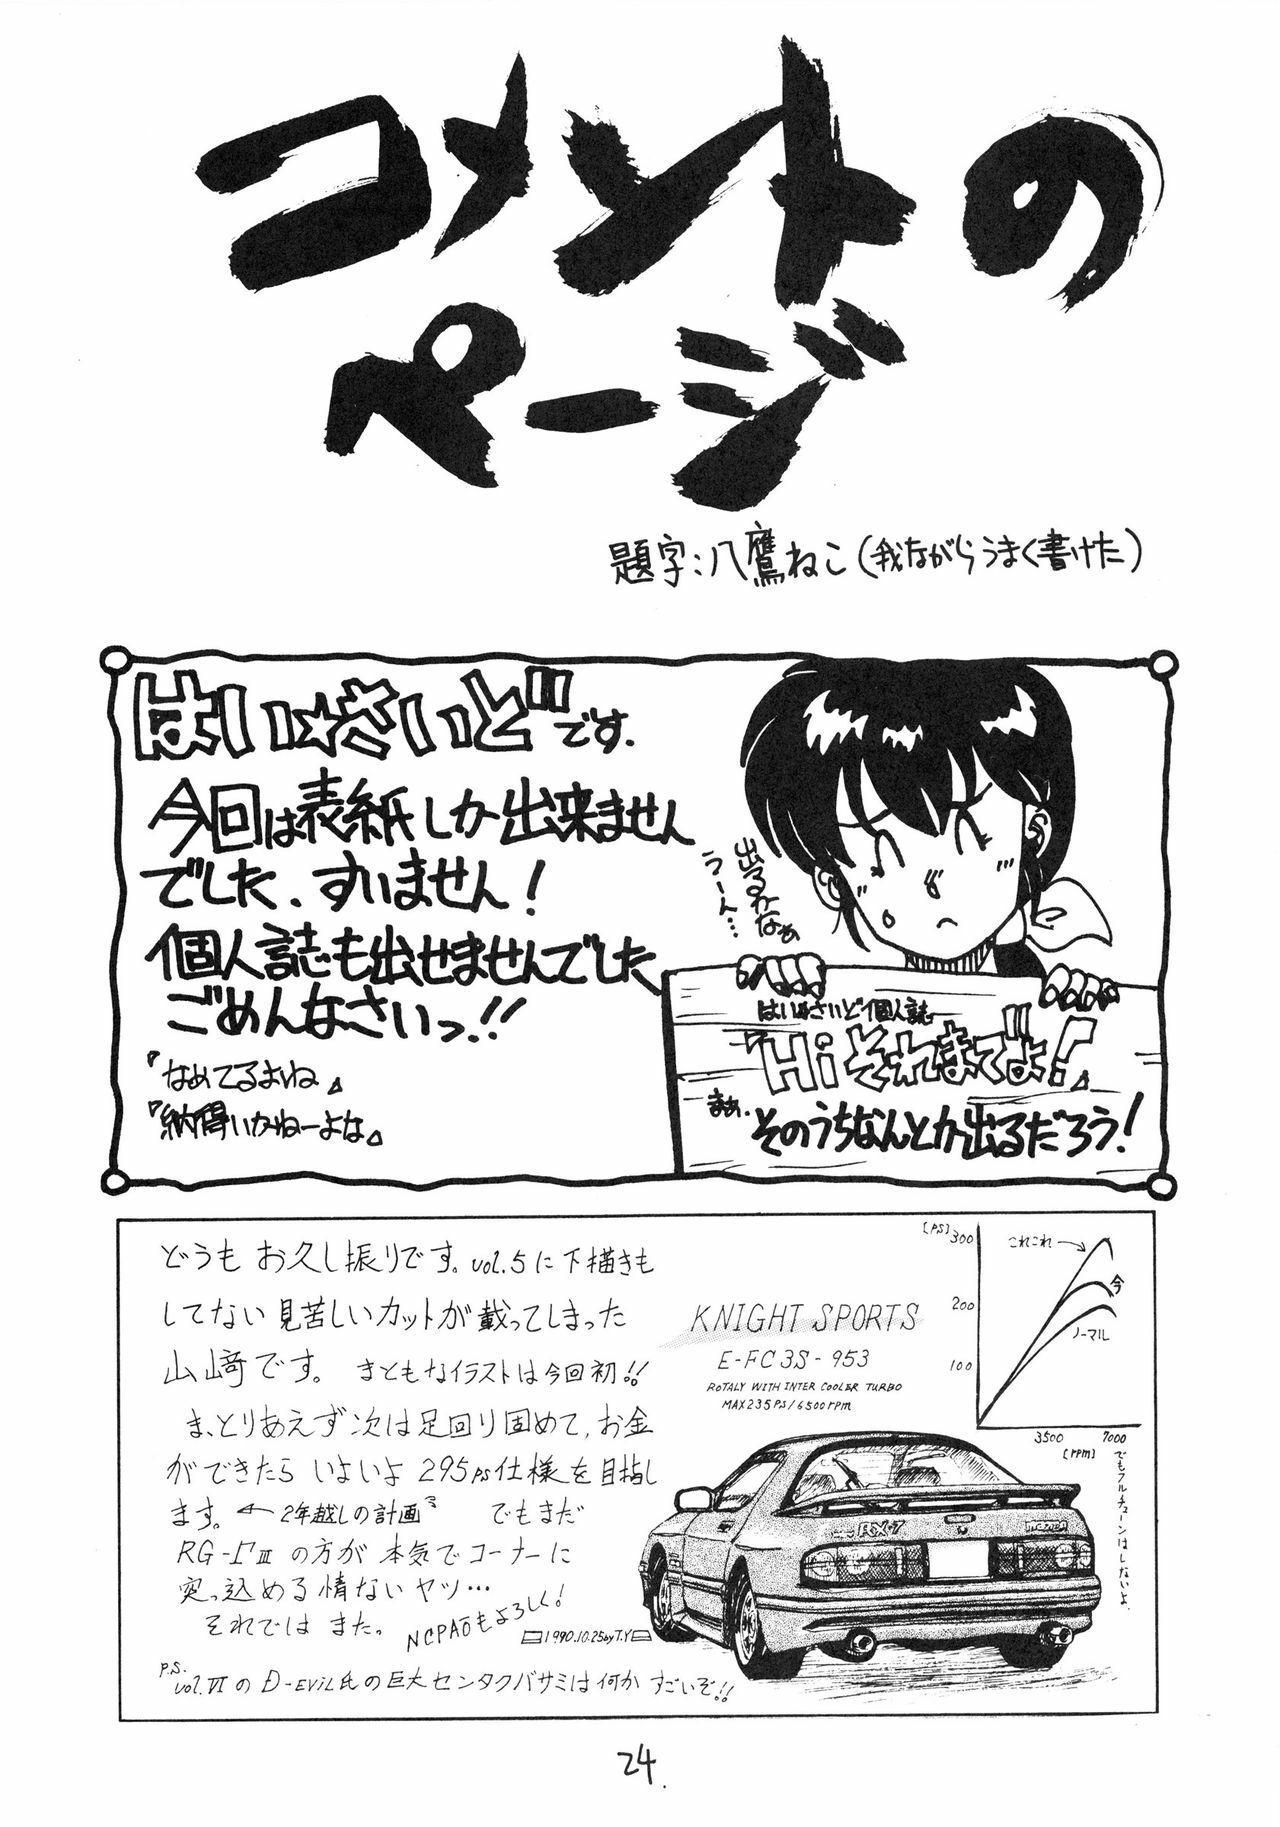 コメントの
ページ
題字:八鷹ねこ(我ながらうまく書けた)
はい☆さいどです.
今回は表紙しか出来ません
でした、すいません!
個人誌も出せませんでした
ごめんなさいっ!!
『なめてるよいね』
『納得いかねーよな』
出るかなぁ
うーん…
はい☆さいど個人誌
『Hiそれまでよ!』
まぁ、
そのうちなんとか出るだろう!
どうも お久し振りです。vol.5に下描きも
してない見苦しいカットが載ってしまった
山崎です。 まともなイラストは今回初!!
ま、とりあえず次は足回り固めて、お金
ができたら いよいよ 295ps仕様を目指し
ます。← 2年越しの計画 でもまだ
RG-ΓⅢの方が 本気でコーナーに
突っ込める情ないヤツ…
それでは また。
NCPAOもよろしく!
1990.10.25 by T.Y
P.S.
vol.Ⅵの D-EViL氏の巨大センタクバサミは何か すごいぞ!!
KNIGHT SPORTS
E-FC3S-953
ROTALY WITH INTER COOLER TURBO
MAX235PS/6500rpm
[PS]
300
200
100
これこれ→
今
ノーマル
3500
7000
[rpm]
でもフルチューンはしないよ.
RX-7
mazda
24.